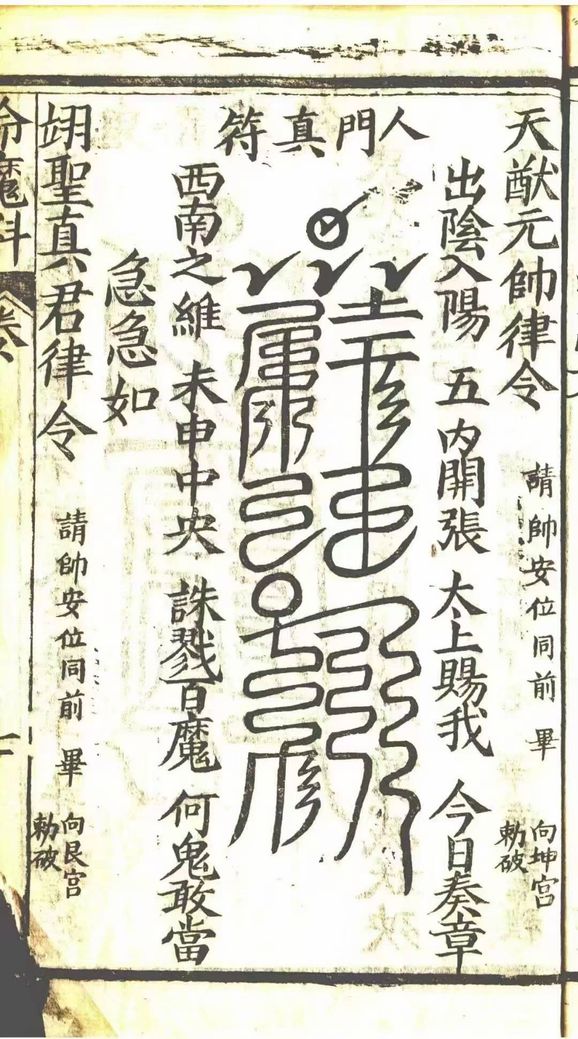 天猷元帥律令 請帥安位同前 畢 向坤宮
勅破
人門真符
出陰入陽 五內開張 太上賜我 今日奏章
西南之維 未申中央 誅戮百魔 何鬼敢當
急急如
翊聖真君律令 請帥安位同前 畢 向艮宮
勅破
魔科